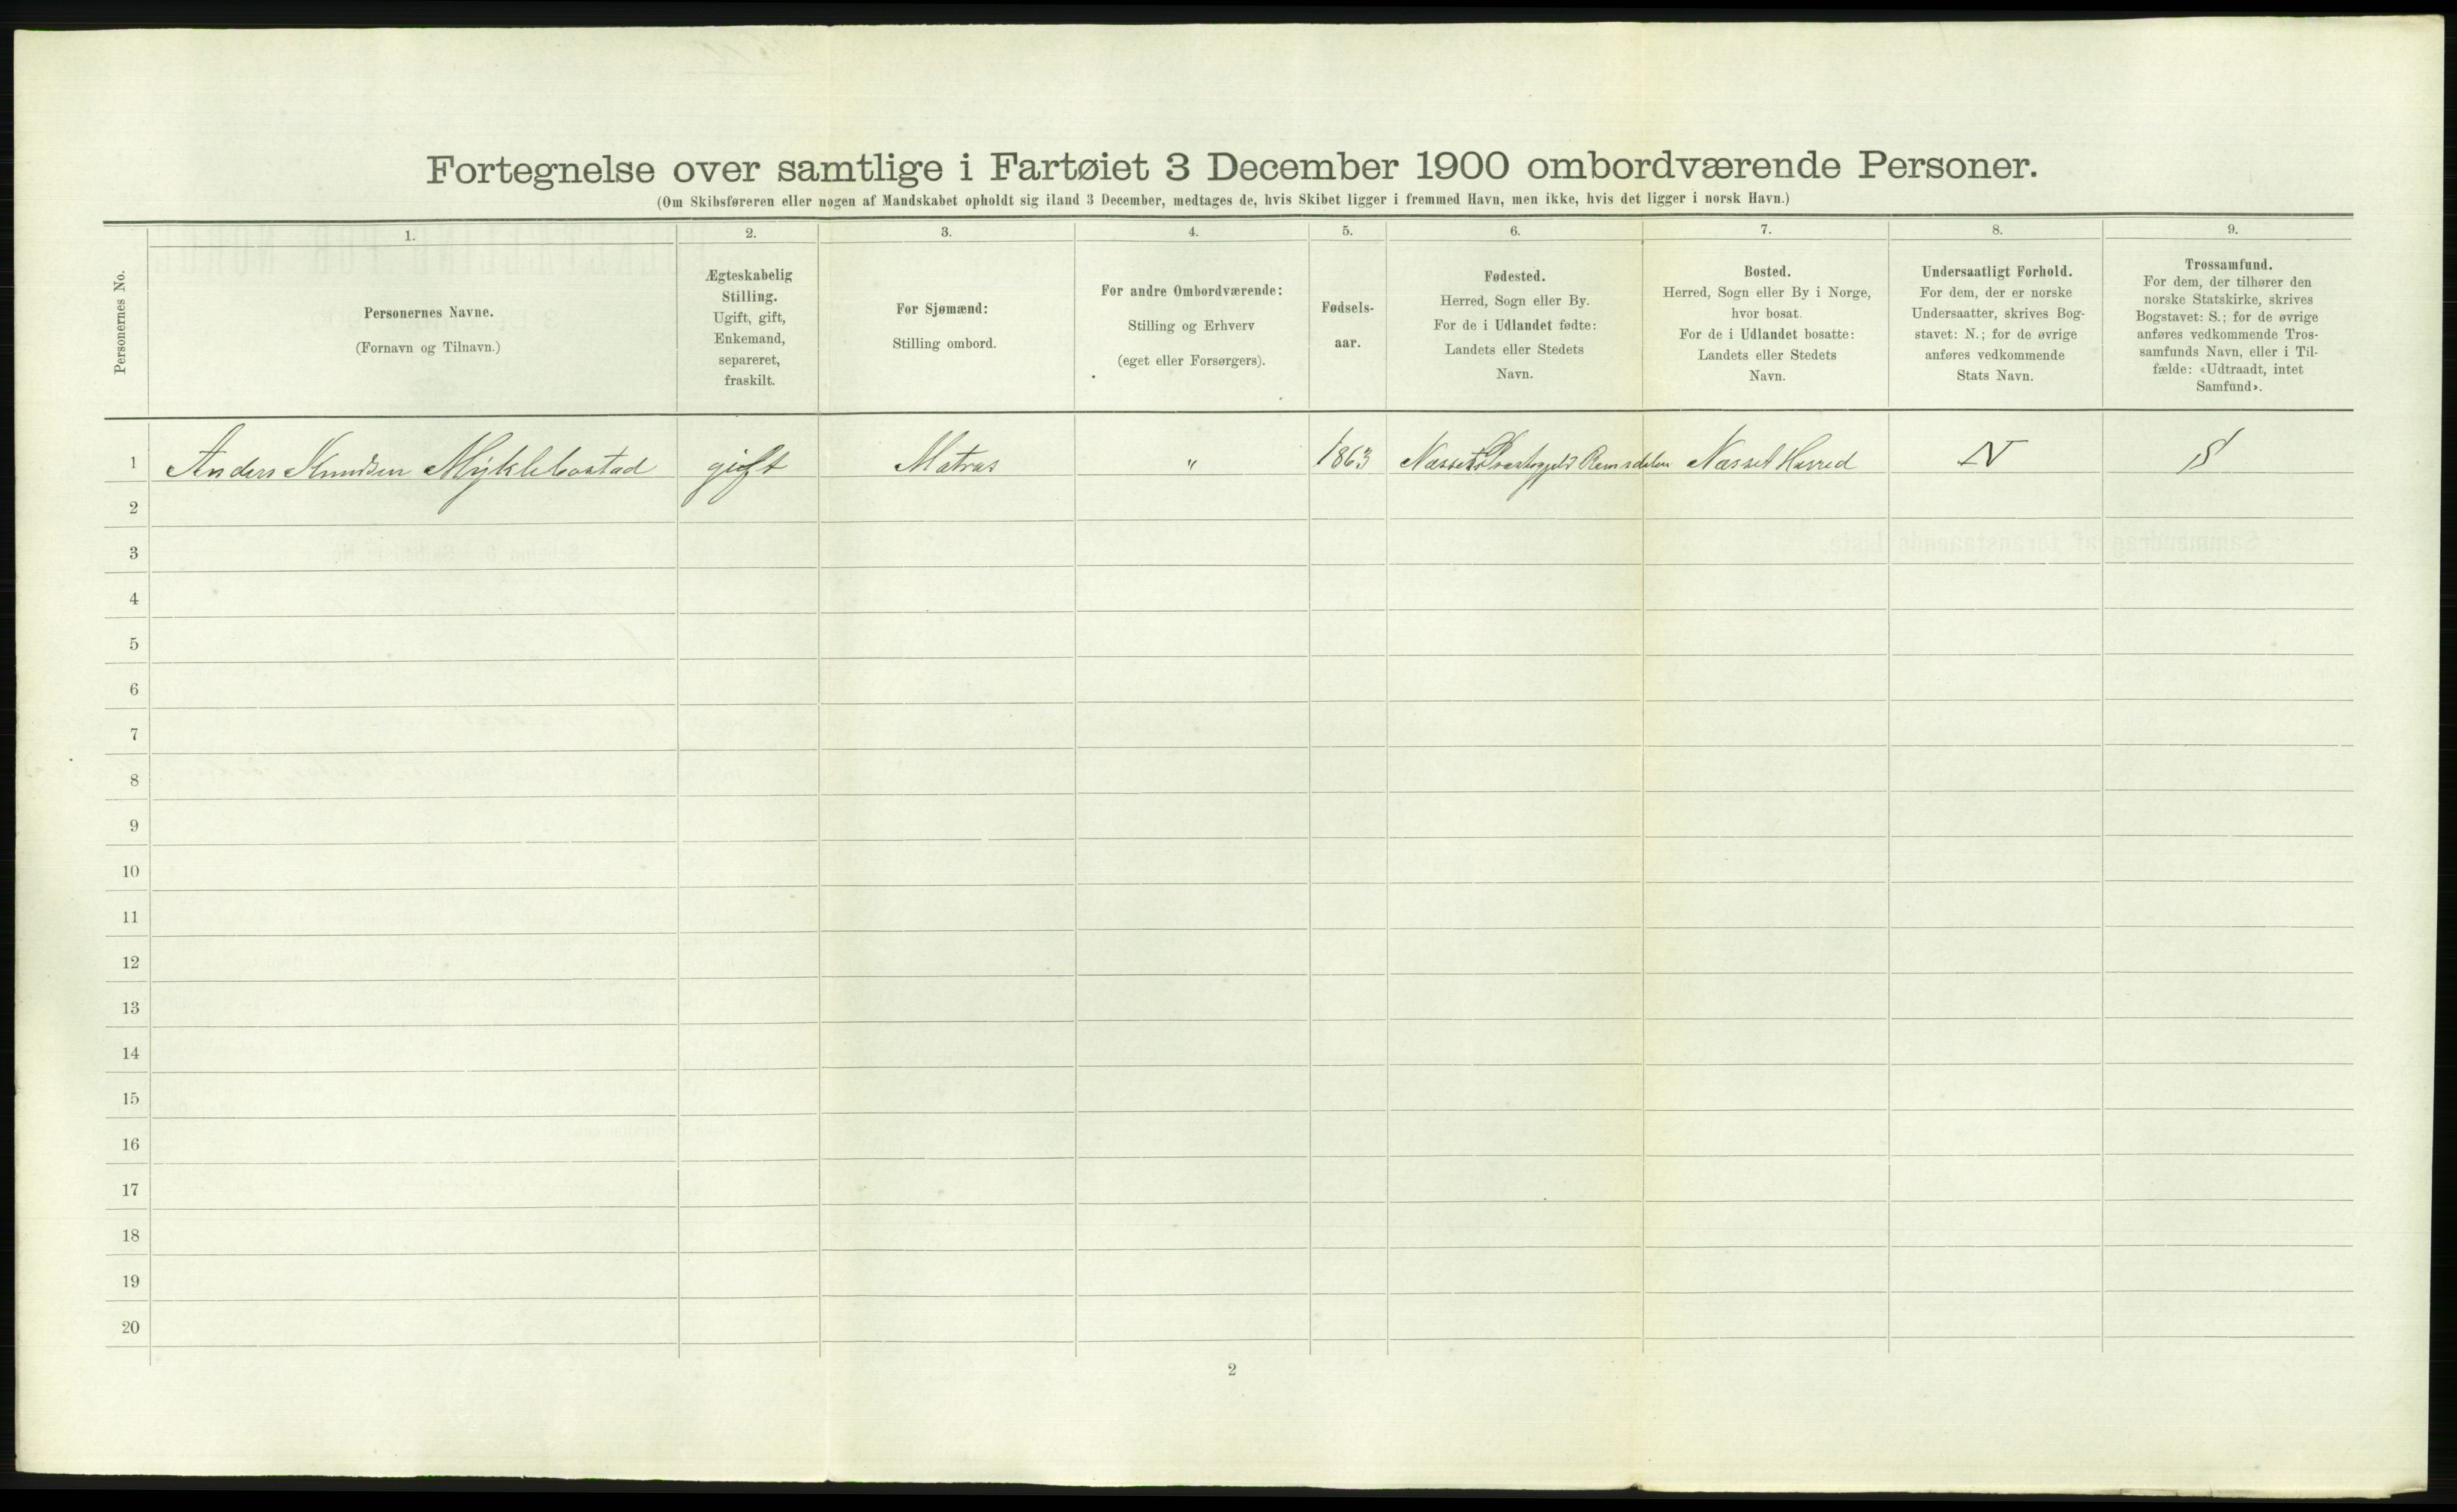 Fortegnelse over samtlige i Fartøiet 3 December 1900 ombordværende Personer.
(Om Skibsføreren eller nogen af Mandskabet opholdt sig iland 3 December, medtages de, hvis Skibet ligger i fremmed Havn, men ikke, hvis det ligger i norsk Havn.)
Personernes No.
1.
Personernes Navne.
(Fornavn og Tilnavn.)
2.
Ægteskabelig
Stilling.
Ugift, gift,
Enkemand,
separeret,
fraskilt.
3.
For Sjømænd:
Stilling ombord.
4.
For andre Ombordværende:
Stilling og Erhverv
(eget eller Forsørgers).
5.
Fødsels-
aar.
6.
Fødested.
Herred, Sogn eller By.
For de i Udlandet fødte:
Landets eller Stedets
Navn.
7.
Bosted.
Herred, Sogn eller By i Norge,
hvor bosat.
For de i Udlandet bosatte:
Landets eller Stedets
Navn.
8.
Undersaatligt Forhold.
For dem, der er norske
Undersaatter, skrives Bog-
stavet: N.; for de øvrige
anføres vedkommende
Stats Navn.
9.
Trossamfund.
For dem, der tilhører den
norske Statskirke, skrives
Bogstavet: S.; for de øvrige
anføres vedkommende Tros-
samfunds Navn, eller i Til-
fælde: «Udtraadt, intet
Samfund».
1 Anders Knudsen Myklebostad gift Matros " 1863 Næsset Præstegjeld Romsdalen Næsset Herred N S
2
3
4
5
6
7
8
9
10
11
12
13
14
15
16
17
18
19
20
2